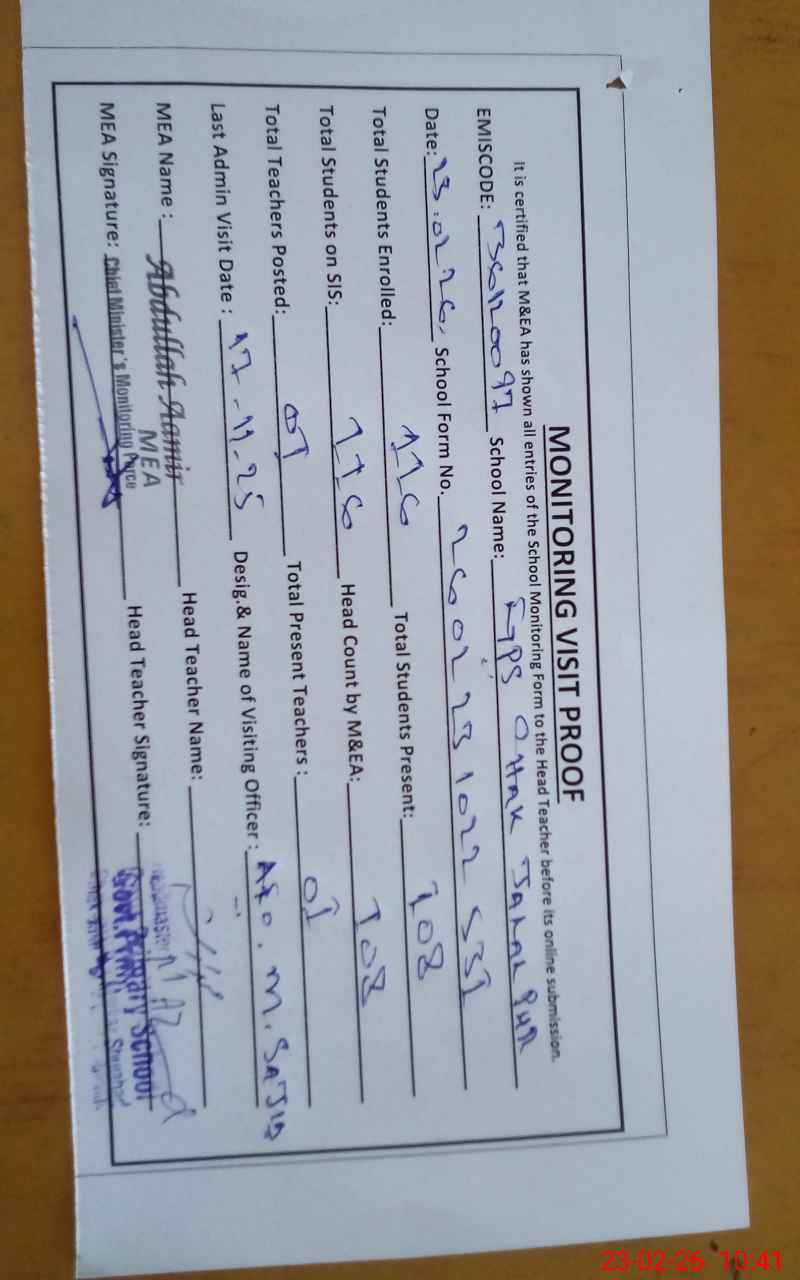 MONITORING VISIT PROOF
It is certified that M&EA has shown all entries of the School Monitoring Form to the Head Teacher before its online submission.
EMISCODE: School Name: GPS Jalal Pur
Date: 23.02.26, School Form No. 260223 1022 531
Total Students Enrolled: 116 Total Students Present: 108
Total Students on SIS: 116 Head Count by M&EA: 108
Total Teachers Posted: 01 Total Present Teachers : 01
Last Admin Visit Date : 17-11-25 Desig.& Name of Visiting Officer : AEO. M. SAJID
MEA Name : Abdullah Aamir MEA Head Teacher Name:
MEA Signature: Chief Minister's Monitoring Force Head Teacher Signature:
Govt. Primary School
23-02-26 10:41